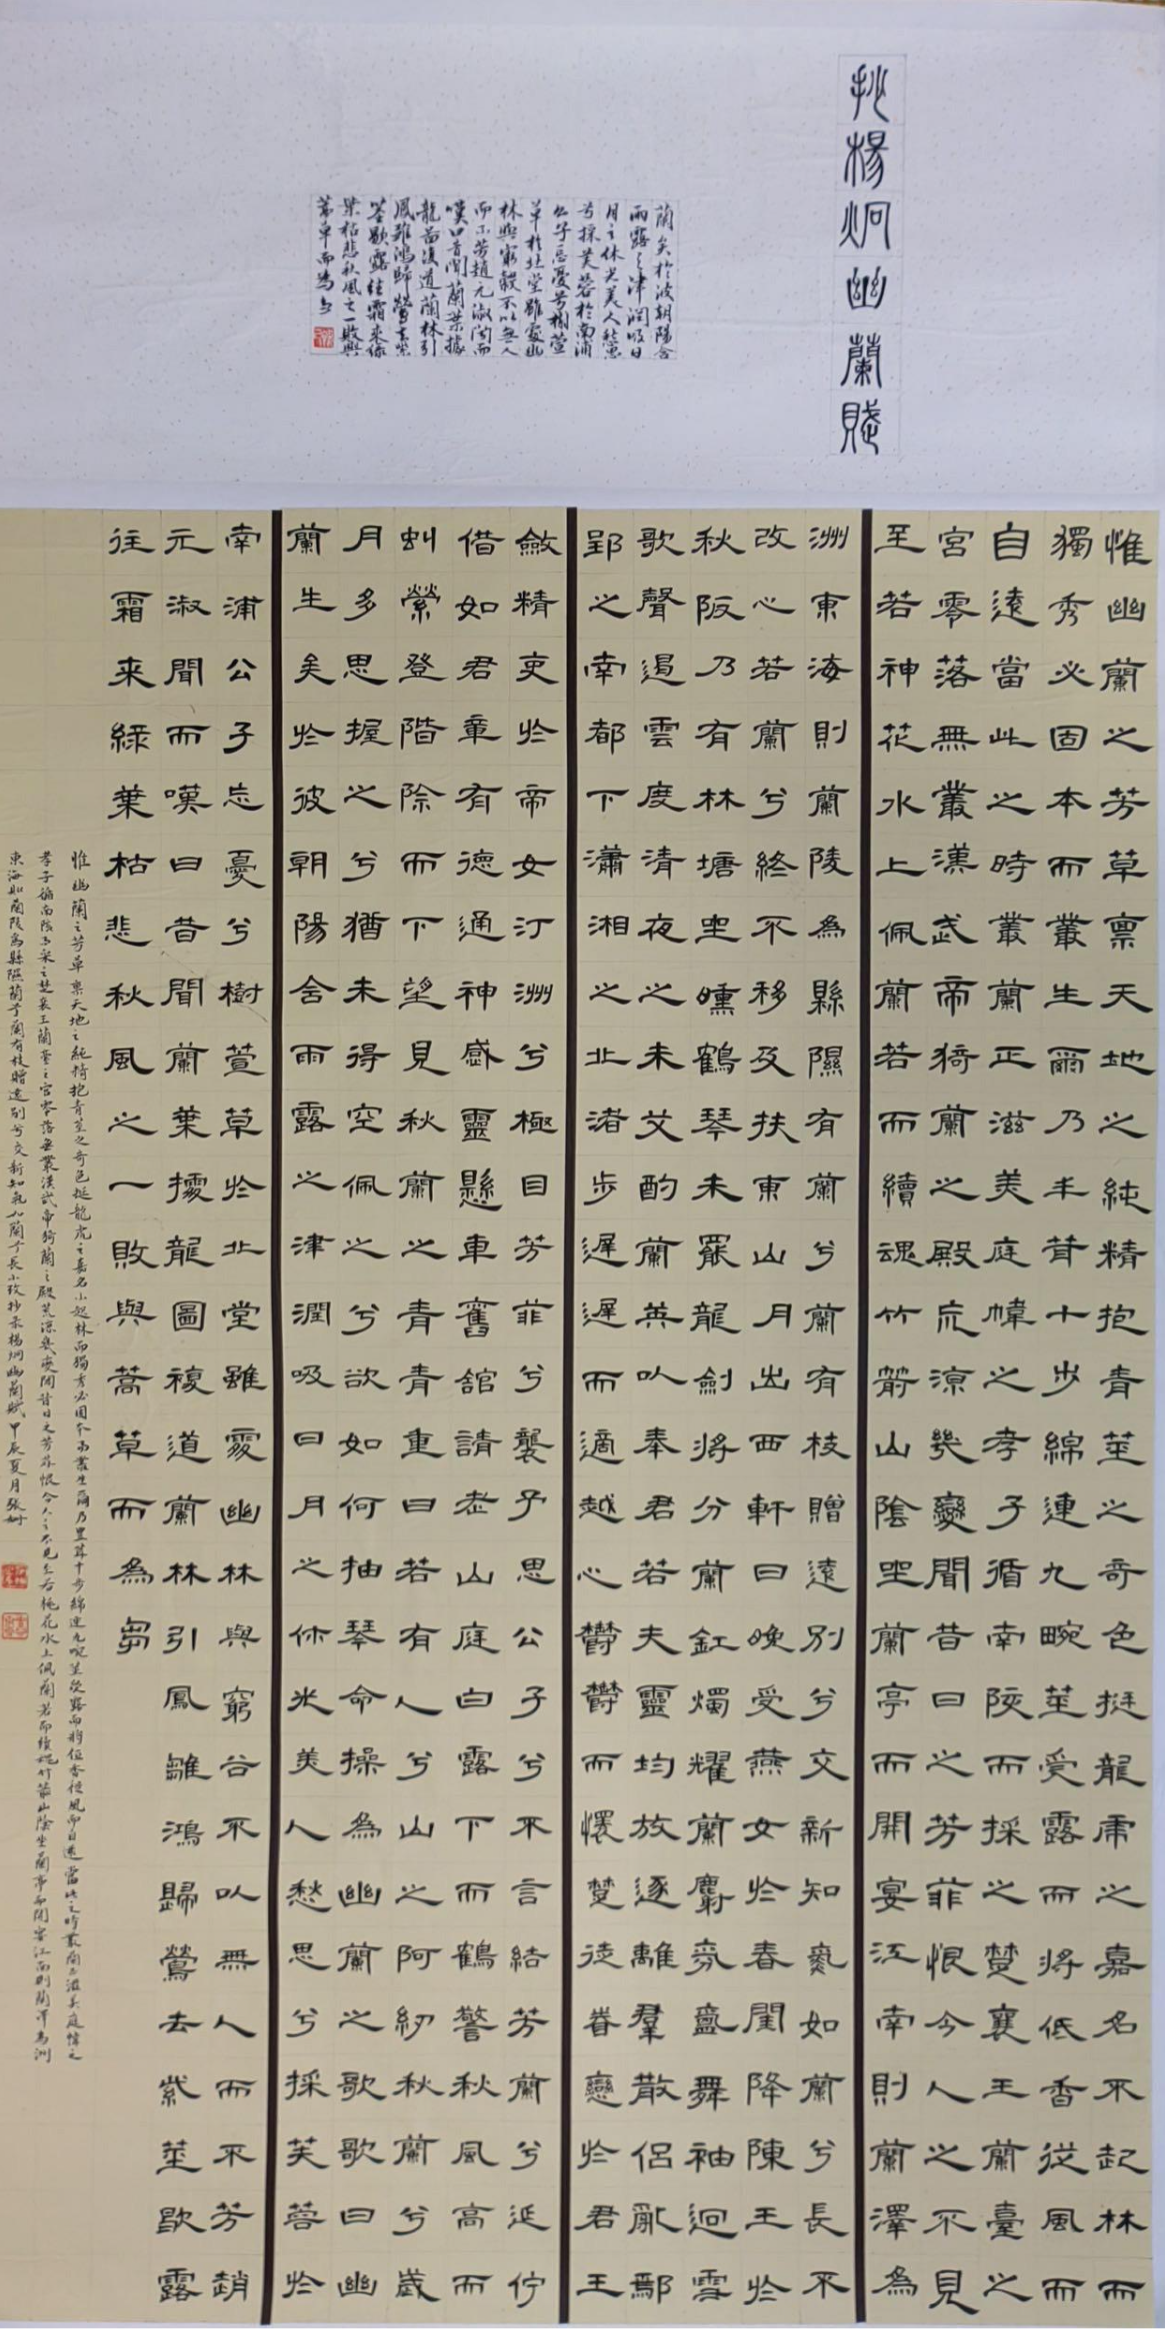 抄楊炯幽蘭賦
蘭矣於彼朝陽含
雨露之津潤吸日
月之休光美人愁思
兮採芙蓉於南浦
公子忘憂兮樹萱
草於北堂雖處幽
林與窮谷不以無人
而不芳趙元淑聞而
嘆曰昔聞蘭葉據
龍圖複道蘭林引
鳳雛鴻歸鶯去紫
莖歇露往霜來綠
葉枯悲秋風之一敗與
蒿草而為芻
惟幽蘭之芳草稟天地之純精抱青莖之奇色挺龍虎之嘉名不起林而
獨秀必固本而叢生爾乃丰茸十步綿連九畹莖受露而將低香從風而
自遠當此之時叢蘭正滋美庭幃之孝子循南陔而採之楚襄王蘭臺之
宮零落無叢漢武帝猗蘭之殿荒涼幾變聞昔日之芳菲恨今人之不見
至若神花水上佩蘭若而續魂竹箭山陰坐蘭亭而開宴江南則蘭澤為
洲東海則蘭陵為縣隰有蘭兮蘭有枝贈遠別兮交新知氣如蘭兮長不
改心若蘭兮終不移及扶東山月出西軒日晚受燕女於春閨降陳王於
秋阪乃有林塘坐曛鶴琴未罷龍劍將分蘭釭燭耀蘭麝氛氳舞袖迴雪
歌聲遏雲度清夜之未艾酌蘭英以奉君若夫靈均放逐離羣散侶亂鄢
郢之南都下瀟湘之北渚步遲遲而適越心鬱鬱而懷楚徒眷戀於君王
斂精爽於帝女汀洲兮極目芳菲兮襲予思公子兮不言結芳蘭兮延佇
借如君章有德通神感靈懸車舊館請老山庭白露下而鶴警秋風高而
虯縈登階除而下望見秋蘭之青青重曰若有人兮山之阿紉秋蘭兮歲
月多思握之兮猶未得空佩之兮欲如何抽琴命操為幽蘭之歌歌曰幽
蘭生矣於彼朝陽含雨露之津潤吸日月之休光美人愁思兮採芙蓉於
南浦公子忘憂兮樹萱草於北堂雖處幽林與窮谷不以無人而不芳趙
元淑聞而嘆曰昔聞蘭葉據龍圖複道蘭林引鳳雛鴻歸鶯去紫莖歇露
往霜來綠葉枯悲秋風之一敗與蒿草而為芻
惟幽蘭之芳草稟天地之純精抱青莖之奇色挺龍虎之嘉名不起林而獨秀必固本而叢生爾乃豐茸十步綿連九畹莖受露而將低香從風而自遠當此之時叢蘭正滋美庭幃之
孝子循南陔而采之楚襄王蘭臺之宮零落無叢漢武帝猗蘭之殿荒涼幾變聞昔日之芳菲恨今人之不見至若桃花水上佩蘭若而續魂竹箭山陰坐蘭亭而開宴江南則蘭澤為洲
東海則蘭陵為縣隰有蘭兮蘭有枝贈遠別兮交新知氣如蘭兮長不改抄錄楊炯幽蘭賦甲辰夏月張